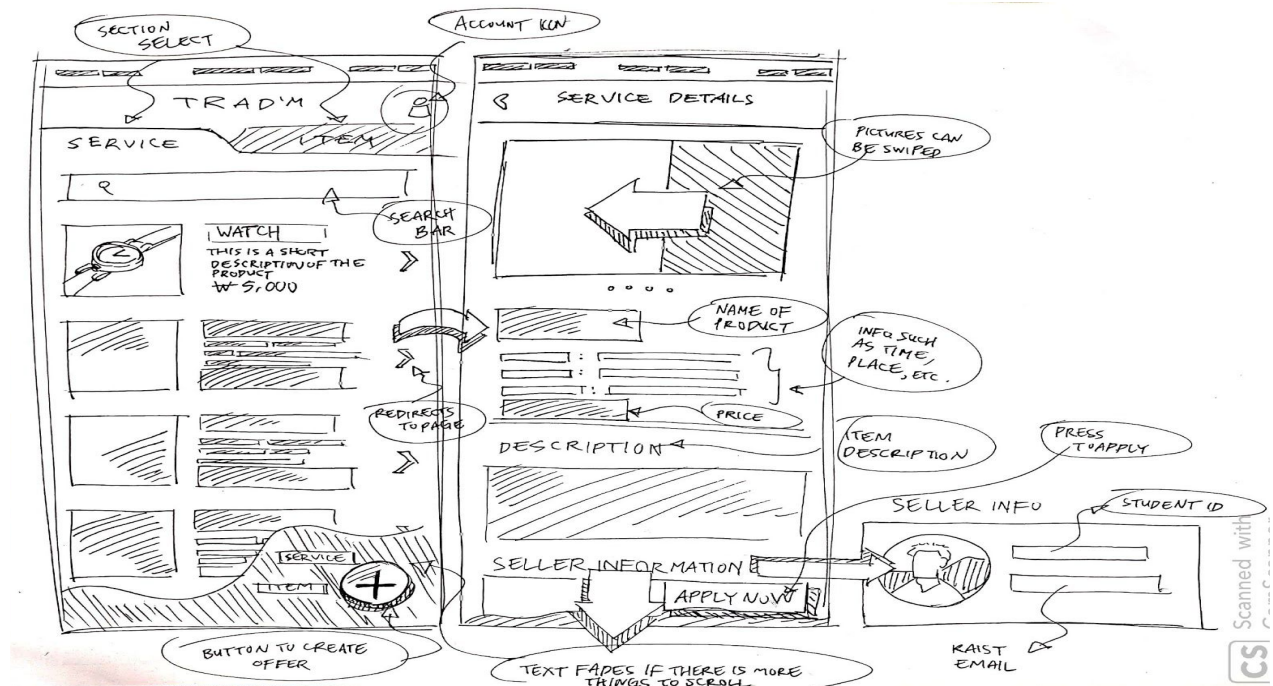 SECTION
SELECT
ACCOUNT ICON
TRAD'M
SERVICE
ITEM
SEARCH
BAR
WATCH
THIS IS A SHORT
DESCRIPTION OF THE
PRODUCT
₩ 5,000
REDIRECTS
TO PAGE
SERVICE
ITEM
BUTTON TO CREATE
OFFER
SERVICE DETAILS
PICTURES CAN
BE SWIPED
NAME OF
PRODUCT
INFO SUCH
AS TIME,
PLACE, ETC.
PRICE
DESCRIPTION
ITEM
DESCRIPTION
PRESS
TO APPLY
SELLER INFORMATION
APPLY NOW
TEXT FADES IF THERE IS MORE
THINGS TO SCROLL
SELLER INFO
STUDENT ID
KAIST
EMAIL
CS Scanned with
CamScanner